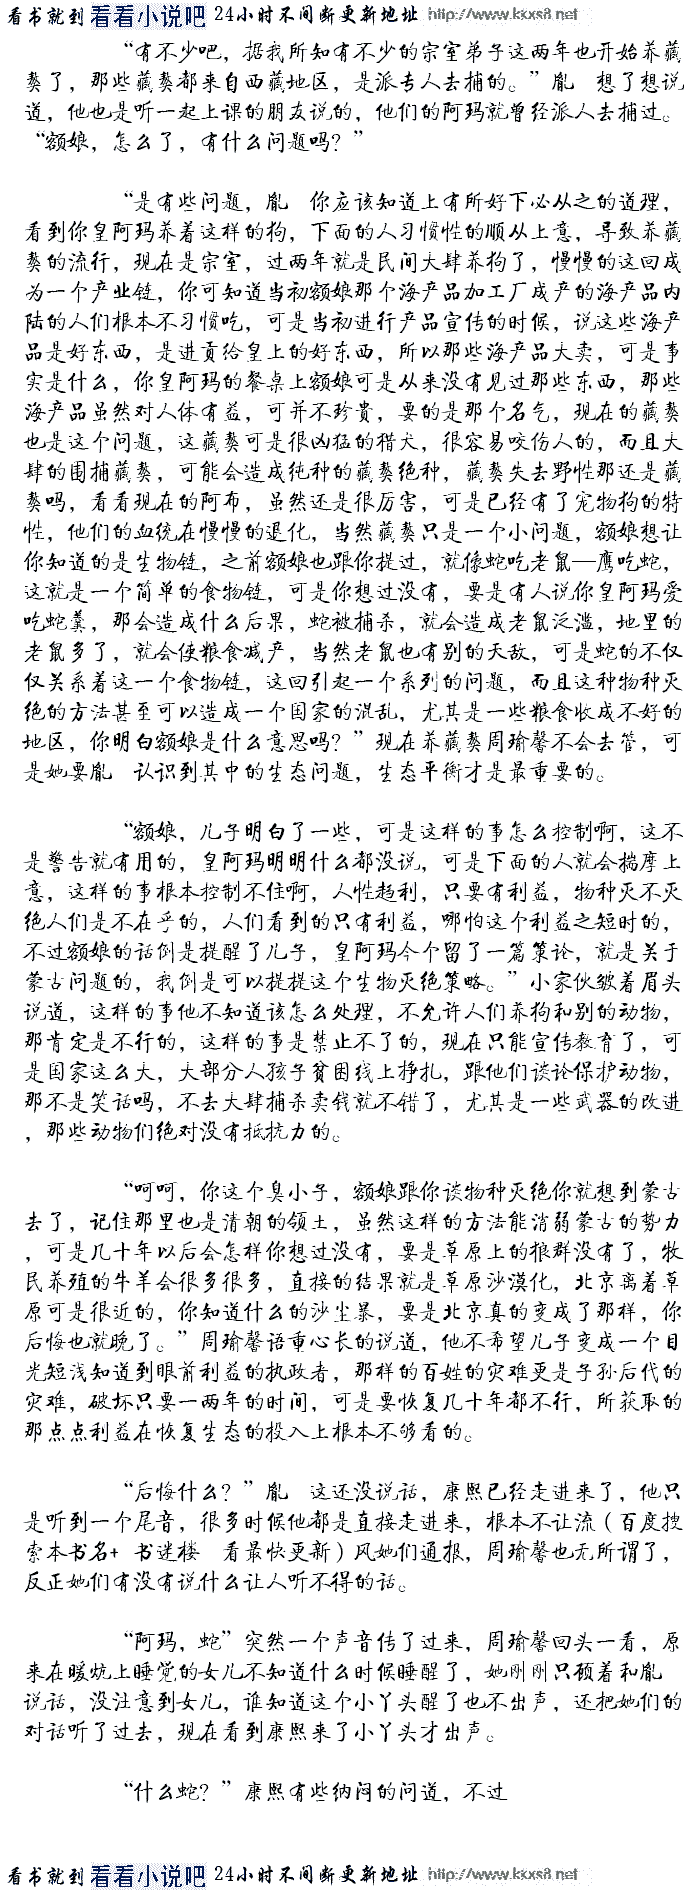 看书就到 看看小说吧 24小时不间断更新地址 http://www.kkxs8.net
“有不少吧，据我所知有不少的宗室弟子这两年也开始养藏
獒了，那些藏獒都来自西藏地区，是派专人去捕的。”胤 想了想说
道，他也是听一起上课的朋友说的，他们的阿玛就曾经派人去捕过。
“额娘，怎么了，有什么问题吗？”
“是有些问题，胤 你应该知道上有所好下必从之的道理，
看到你皇阿玛养着这样的狗，下面的人习惯性的顺从上意，导致养藏
獒的流行，现在是宗室，过两年就是民间大肆养狗了，慢慢的这回成
为一个产业链，你可知道当初额娘那个海产品加工厂成产的海产品内
陆的人们根本不习惯吃，可是当初进行产品宣传的时候，说这些海产
品是好东西，是进贡给皇上的好东西，所以那些海产品大卖，可是事
实是什么，你皇阿玛的餐桌上额娘可是从来没有见过那些东西，那些
海产品虽然对人体有益，可并不珍贵，要的是那个名气，现在的藏獒
也是这个问题，这藏獒可是很凶猛的猎犬，很容易咬伤人的，而且大
肆的围捕藏獒，可能会造成纯种的藏獒绝种，藏獒失去野性那还是藏
獒吗，看看现在的阿布，虽然还是很厉害，可是已经有了宠物狗的特
性，他们的血统在慢慢的退化，当然藏獒只是一个小问题，额娘想让
你知道的是生物链，之前额娘也跟你提过，就像蛇吃老鼠—鹰吃蛇，
这就是一个简单的食物链，可是你想过没有，要是有人说你皇阿玛爱
吃蛇羹，那会造成什么后果，蛇被捕杀，就会造成老鼠泛滥，地里的
老鼠多了，就会使粮食减产，当然老鼠也有别的天敌，可是蛇的不仅
仅关系着这一个食物链，这回引起一个系列的问题，而且这种物种灭
绝的方法甚至可以造成一个国家的混乱，尤其是一些粮食收成不好的
地区，你明白额娘是什么意思吗？”现在养藏獒周瑜馨不会去管，可
是她要胤 认识到其中的生态问题，生态平衡才是最重要的。
“额娘，儿子明白了一些，可是这样的事怎么控制啊，这不
是警告就有用的，皇阿玛明明什么都没说，可是下面的人就会揣摩上
意，这样的事根本控制不住啊，人性趋利，只要有利益，物种灭不灭
绝人们是不在乎的，人们看到的只有利益，哪怕这个利益之短时的，
不过额娘的话倒是提醒了儿子，皇阿玛今个留了一篇策论，就是关于
蒙古问题的，我倒是可以提提这个生物灭绝策略。”小家伙皱着眉头
说道，这样的事他不知道该怎么处理，不允许人们养狗和别的动物，
那肯定是不行的，这样的事是禁止不了的，现在只能宣传教育了，可
是国家这么大，大部分人孩子贫困线上挣扎，跟他们谈论保护动物，
那不是笑话吗，不去大肆捕杀卖钱就不错了，尤其是一些武器的改进
，那些动物们绝对没有抵抗力的。
“呵呵，你这个臭小子，额娘跟你谈物种灭绝你就想到蒙古
去了，记住那里也是清朝的领土，虽然这样的方法能消弱蒙古的势力
，可是几十年以后会怎样你想过没有，要是草原上的狼群没有了，牧
民养殖的牛羊会很多很多，直接的结果就是草原沙漠化，北京离着草
原可是很近的，你知道什么的沙尘暴，要是北京真的变成了那样，你
后悔也就晚了。”周瑜馨语重心长的说道，他不希望儿子变成一个目
光短浅知道到眼前利益的执政者，那样的百姓的灾难更是子孙后代的
灾难，破坏只要一两年的时间，可是要恢复几十年都不行，所获取的
那点点利益在恢复生态的投入上根本不够看的。
“后悔什么？”胤 这还没说话，康熙已经走进来了，他只
是听到一个尾音，很多时候他都是直接走进来，根本不让流（百度搜
索本书名+ 书迷楼 看最快更新）风她们通报，周瑜馨也无所谓了，
反正她们有没有说什么让人听不得的话。
“阿玛，蛇”突然一个声音传了过来，周瑜馨回头一看，原
来在暖炕上睡觉的女儿不知道什么时候睡醒了，她刚刚只顾着和胤
说话，没注意到女儿，谁知道这个小丫头醒了也不出声，还把她们的
对话听了过去，现在看到康熙来了小丫头才出声。
“什么蛇？”康熙有些纳闷的问道，不过
看书就到 看看小说吧 24小时不间断更新地址 http://www.kkxs8.net